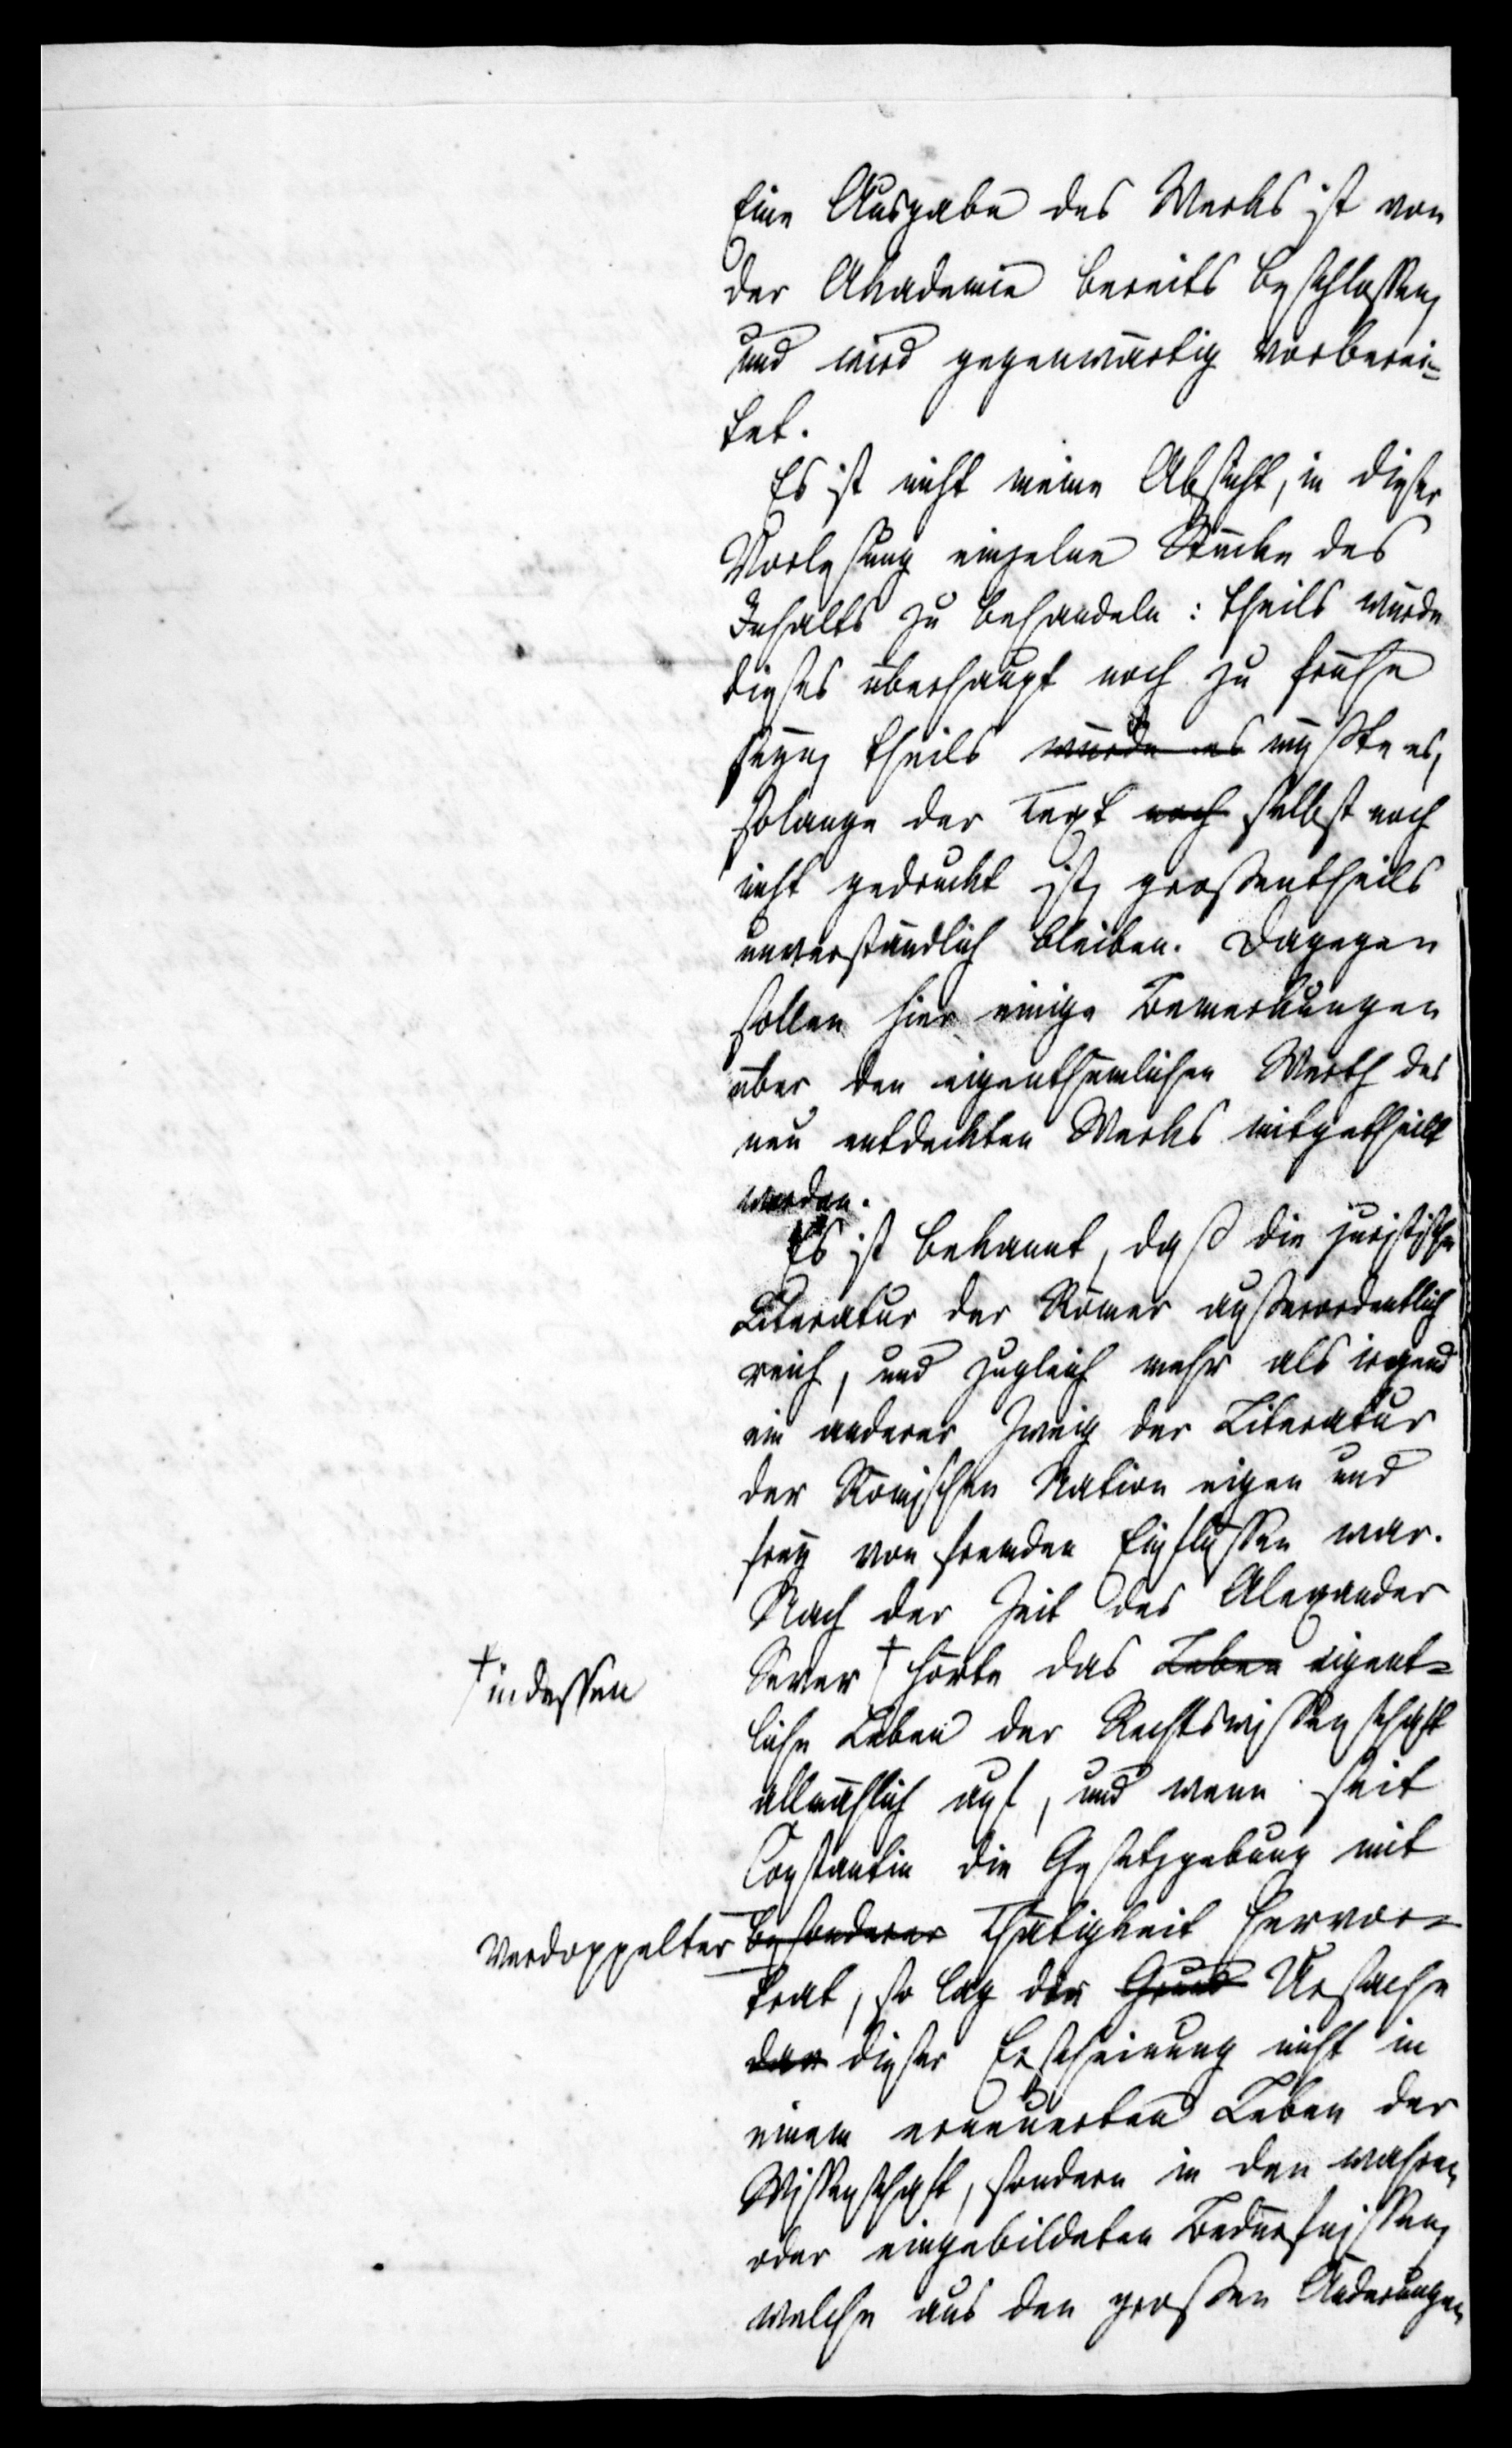 Eine Ausgabe des Werks ist von
der Akademie bereits beschlossen,
und wird gegenwärtig vorberei=
tet.
Es ist nicht meine Absicht, in dieser
Vorlesung einzelne Stücke des
Inhalts zu behandeln: theils würde
dieses überhaupt noch zu frühe
seyn, theils würde es müßte es,
solange der Text noch selbst noch
nicht gedruckt ist, großentheils
unverständlich bleiben. Dagegen
sollen hier einige Bemerkungen
über den eigenthümlichen Werth des
neu entdeckten Werks mitgetheilt
werden.
Es ist bekannt, daß die juristische
Literatur der Römer außerordentlich
reich, und zugleich mehr als irgend
ein anderer Zweig der Literatur
der Römischen Nation eigen und
frey von fremden Einflüssen war.
Nach der Zeit des Alexander
Sever † hörte das Leben eigent=
† indessen
liche Leben der Rechtswissenschaft
allmählich auf, und wenn seit
Constantin die Gesetzgebung mit
verdoppelter besonderer Thätigkeit hervor=
trat, so lag der Grund Ursache
der dieser Erscheinung nicht in
einem erneuerten Leben der
Wissenschaft, sondern in den wahren
oder eingebildeten Bedürfnissen,
welche aus den großen Änderungen